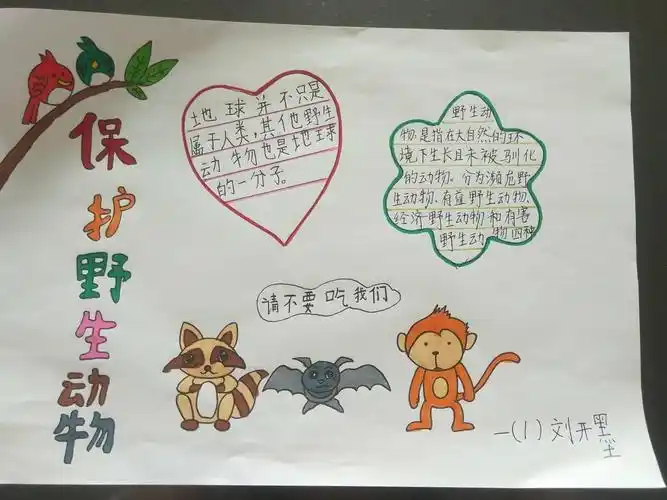 保
护
野
生
动
物
地球并不只是
属于人类,其他野生
动物也是地球
的一分子。
野生动
物是指在大自然的环
境下生长且未被驯化
的动物。分为濒危野
生动物、有益野生动物、
经济野生动物和有害
野生动物四种
请不要吃我们
一(1)刘开墨